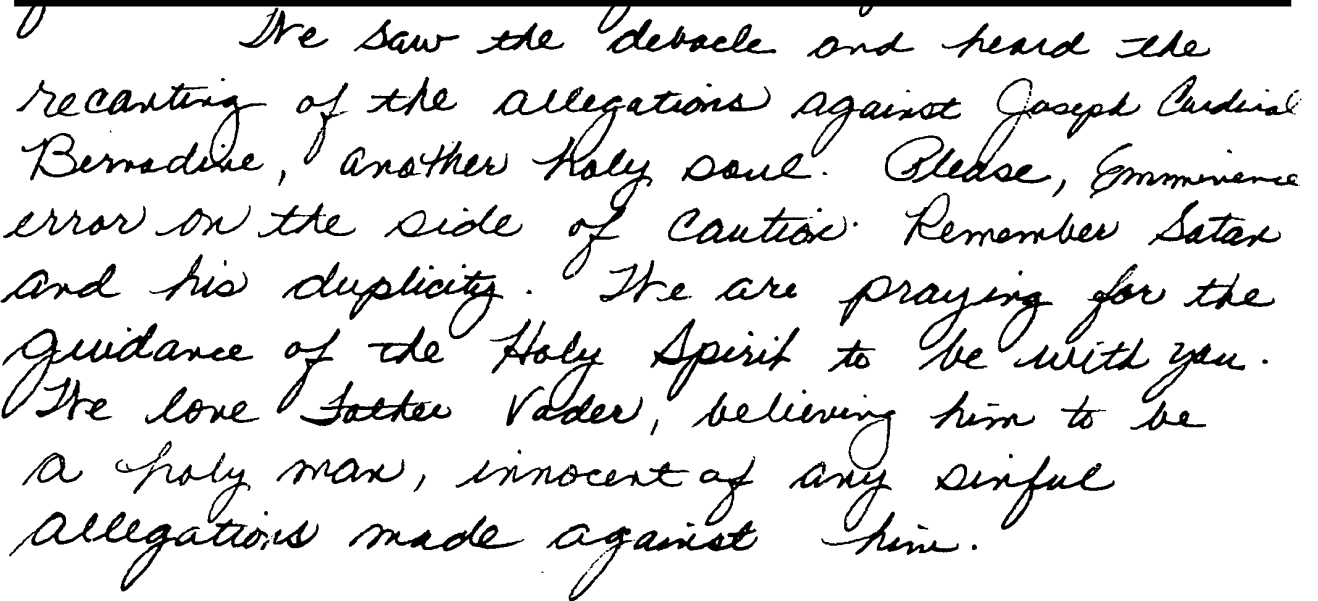 We saw the debacle and heard the
recanting of the allegations against Joseph Cardinal
Bernadine, another holy soul. Please, Emminence
error on the side of caution. Remember Satan
and his duplicity. We are praying for the
guidance of the Holy Spirit to be with you.
We love Father Vader, believing him to be
a holy man, innocent of any sinful
allegations made against him.